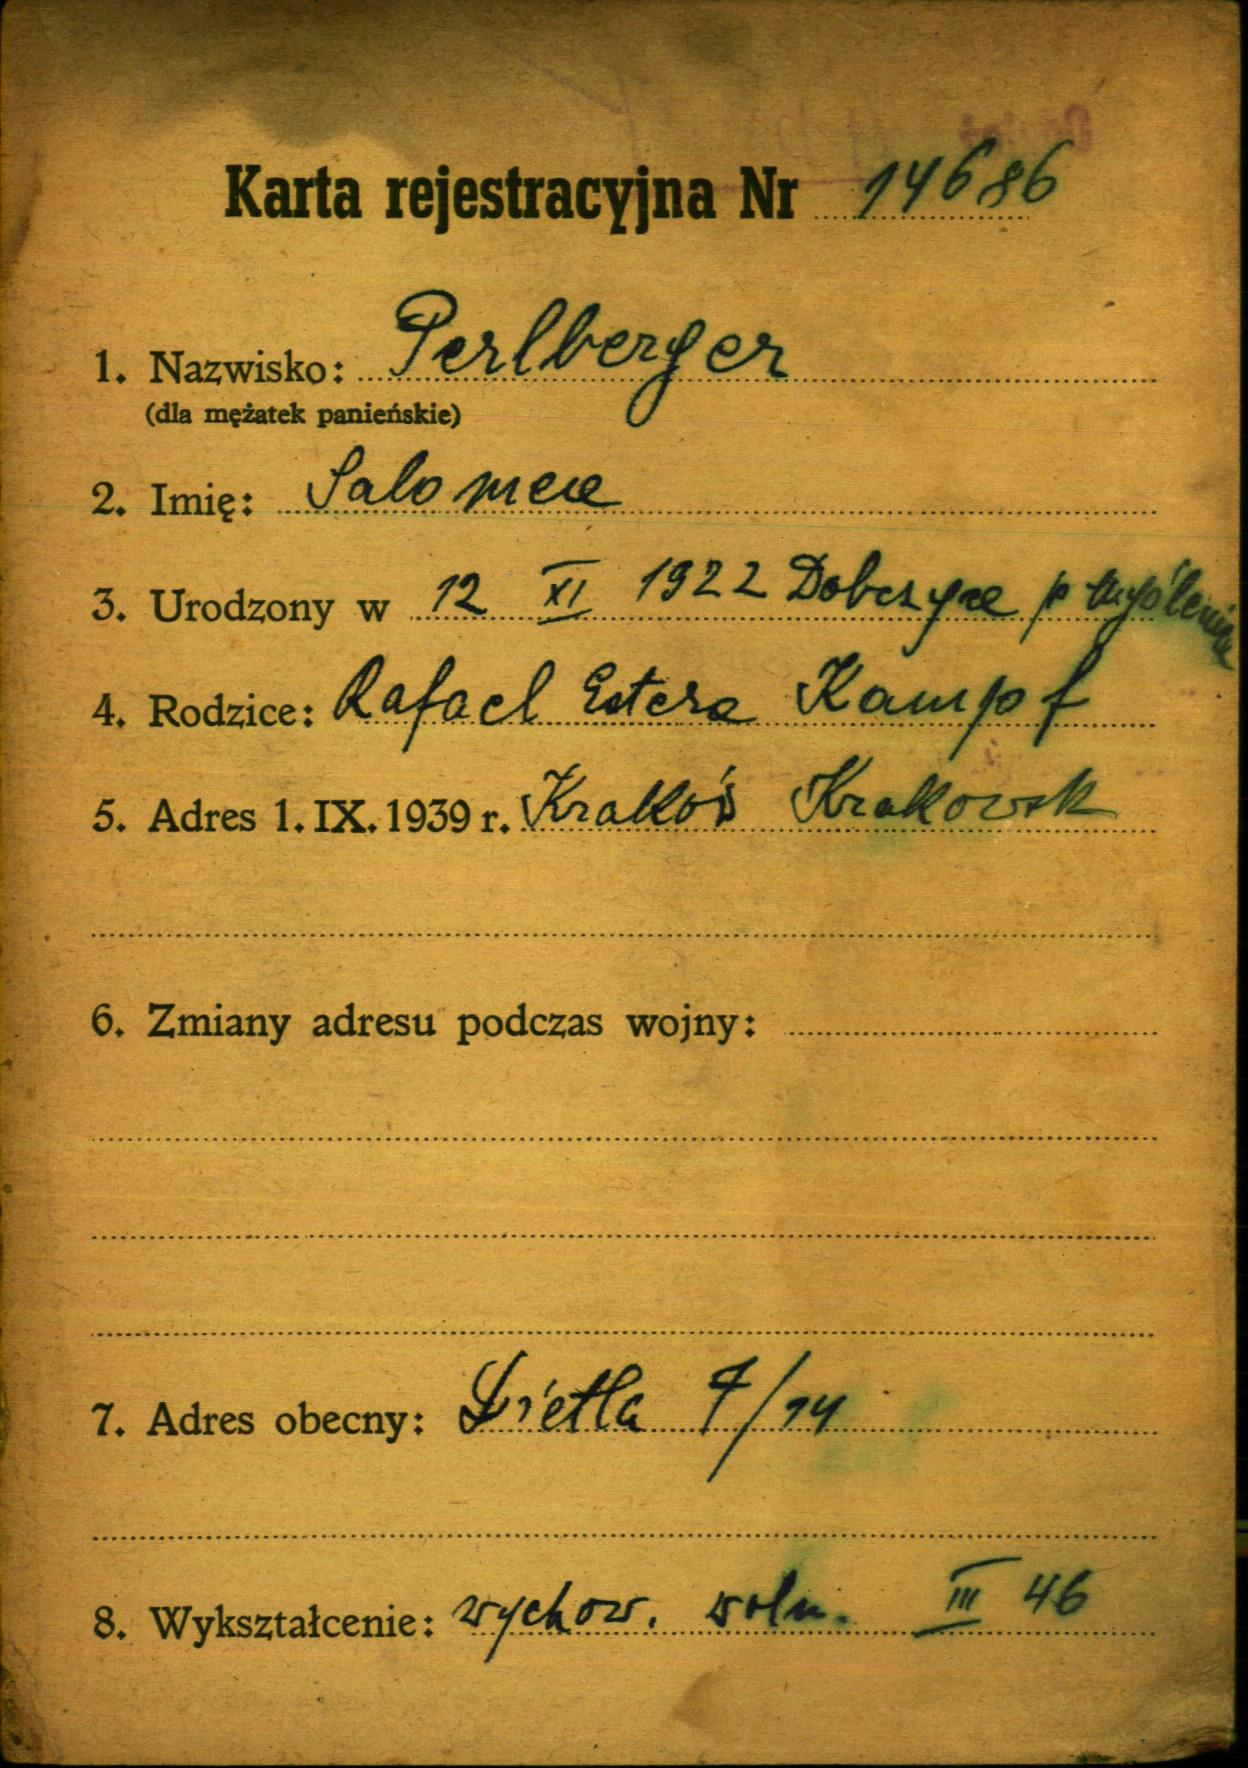 Karta rejestracyjna Nr 14686
1. Nazwisko: Perlberger
(dla mężatek panieńskie)
2. Imię: Salomea
3. Urodzony w 12 XI 1922 Dobczyce p Myślenice
4. Rodzice: Rafael Estera Kampf
5. Adres 1. IX. 1939 r. Kraków Krakowsk
6. Zmiany adresu podczas wojny:
7. Adres obecny: Dietla 7/14
8. Wykształcenie: wychow. III 46